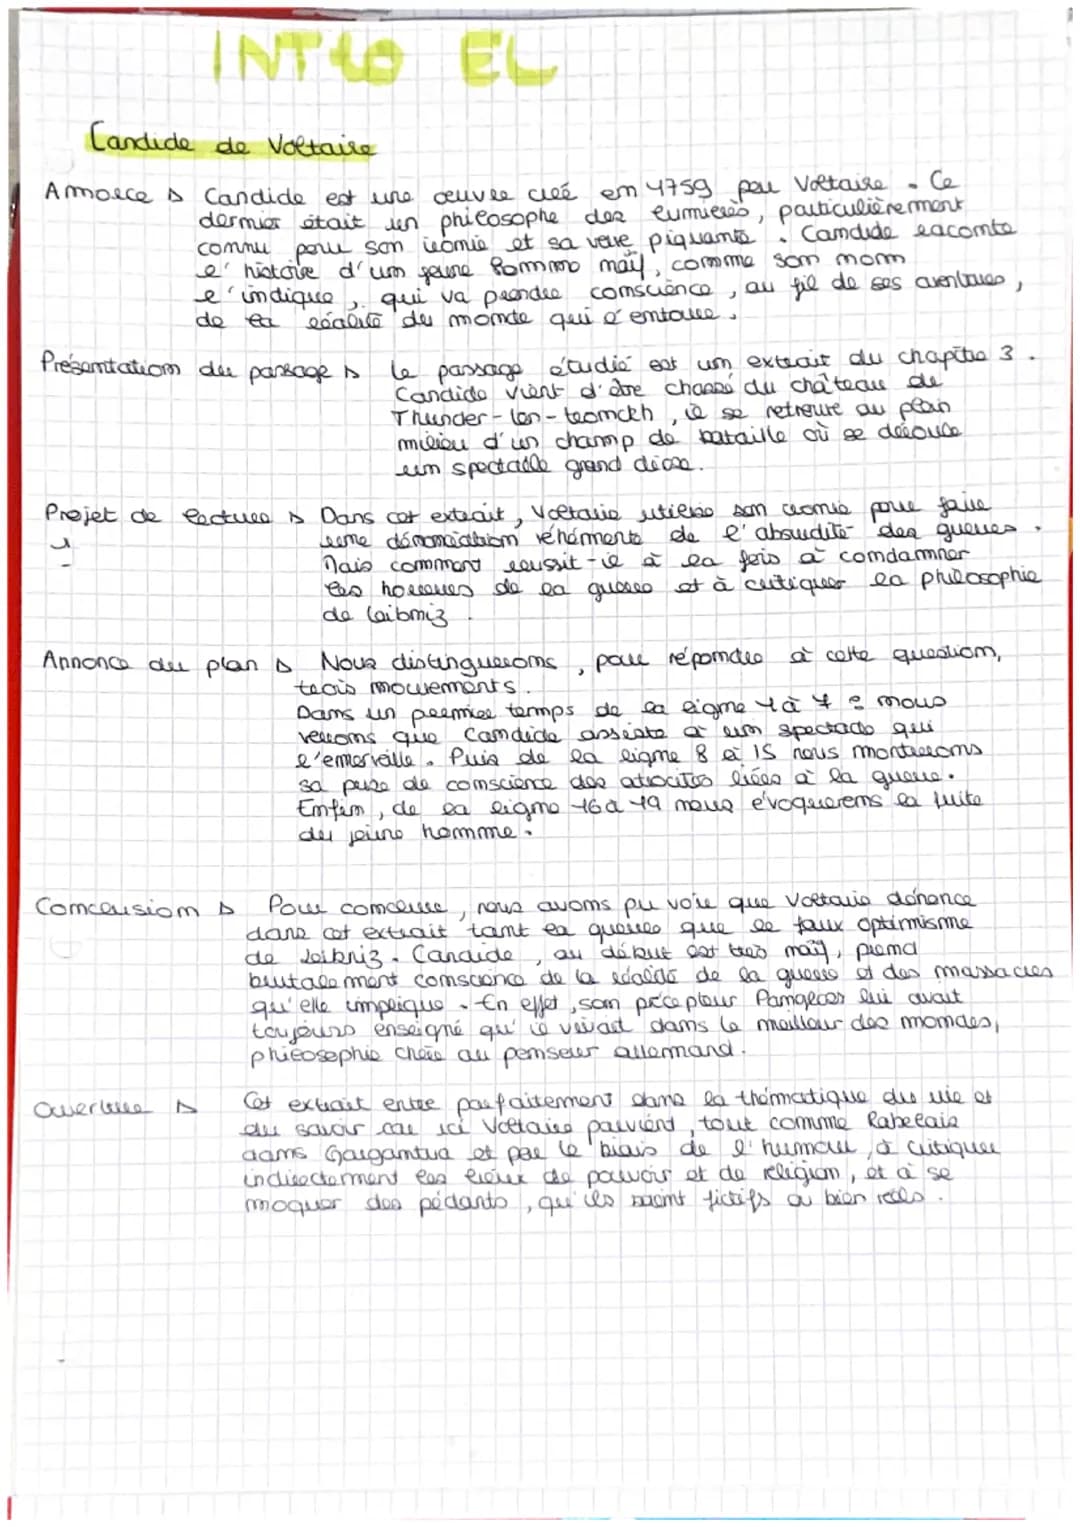 INTro EL
Candide de Voltaire
Amorce ▷ Candide est une œuvre créé en 1759 par Voltaire. Ce
dernier était un philosophe des lumières, particulièrement
connu pour son ironie et sa verve piquante. Candide raconte
l'histoire d'un jeune homme naïf, comme son nom
l'indique, qui va prendre conscience, au fil de ses aventures,
de la réalité du monde qui l'entoure.
Présentation du passage ▷ Le passage étudié est un extrait du chapitre 3.
Candide vient d'être chassé du château de
Thunder-ten-tronckh, il se retrouve au plein
milieu d'un champ de bataille où se déroule
un spectacle grandiose.
Projet de lecture ▷ Dans cet extrait, Voltaire utilise son ironie pour faire
une dénonciation véhémente de l'absurdité des guerres.
Mais comment réussit-il à la fois à condamner
les horreurs de la guerre et à critiquer la philosophie
de Leibniz.
Annonce du plan ▷ Nous distinguerons, pour répondre à cette question,
trois mouvements.
Dans un premier temps de la ligne 1 à 7 : nous
verrons que Candide assiste à un spectacle qui
l'émerveille. Puis de la ligne 8 à 15 nous montrerons
sa prise de conscience des atrocités liées à la guerre.
Enfin, de la ligne 16 à 19 nous évoquerons la fuite
du jeune homme.
Conclusion ▷ Pour conclure, nous avons pu voir que Voltaire dénonce
dans cet extrait tant la guerre que le faux optimisme
de Leibniz. Candide, au début est très naïf, prend
brutalement conscience de la réalité de la guerre et des massacres
qu'elle implique. En effet, son précepteur Pangloss lui avait
toujours enseigné qu'il vivait dans le meilleur des mondes,
philosophie chère au penseur allemand.
Ouverture ▷ Cet extrait entre parfaitement dans la thématique du rire et
du savoir car ici Voltaire parvient, tout comme Rabelais
dans Gargantua et par le biais de l'humour, à critiquer
indirectement les lieux de pouvoir et de religion, et à se
moquer des pédants, qu'ils soient fictifs ou bien réels.